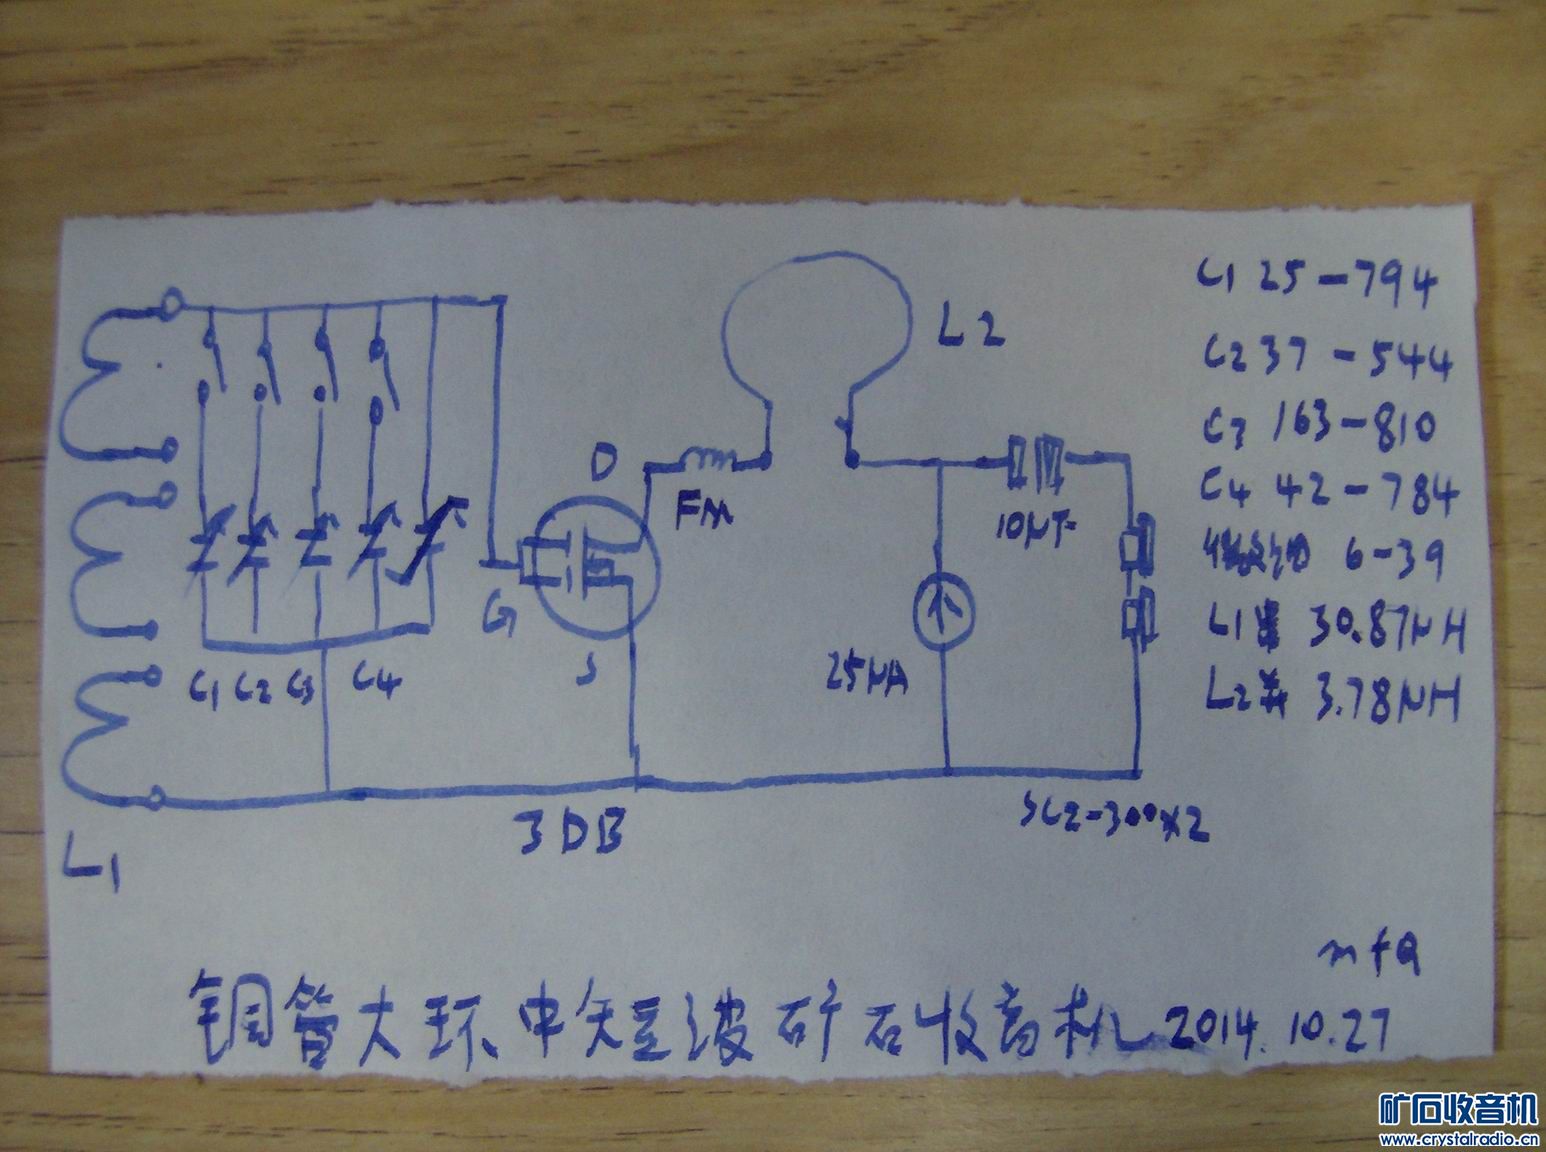 C1 25-794
L2
C2 37-544
C3 163-810
D
C4 42-784
FM
10μF
6-39
G
L1串 30.87μH
S
25μA
C1 C2 C3 C4
L2并 3.78μH
3DB
SC2-300×2
L1
mfQ
铜管大环中短波矿石收音机 2014.10.27
矿石收音机
www.crystalradio.cn